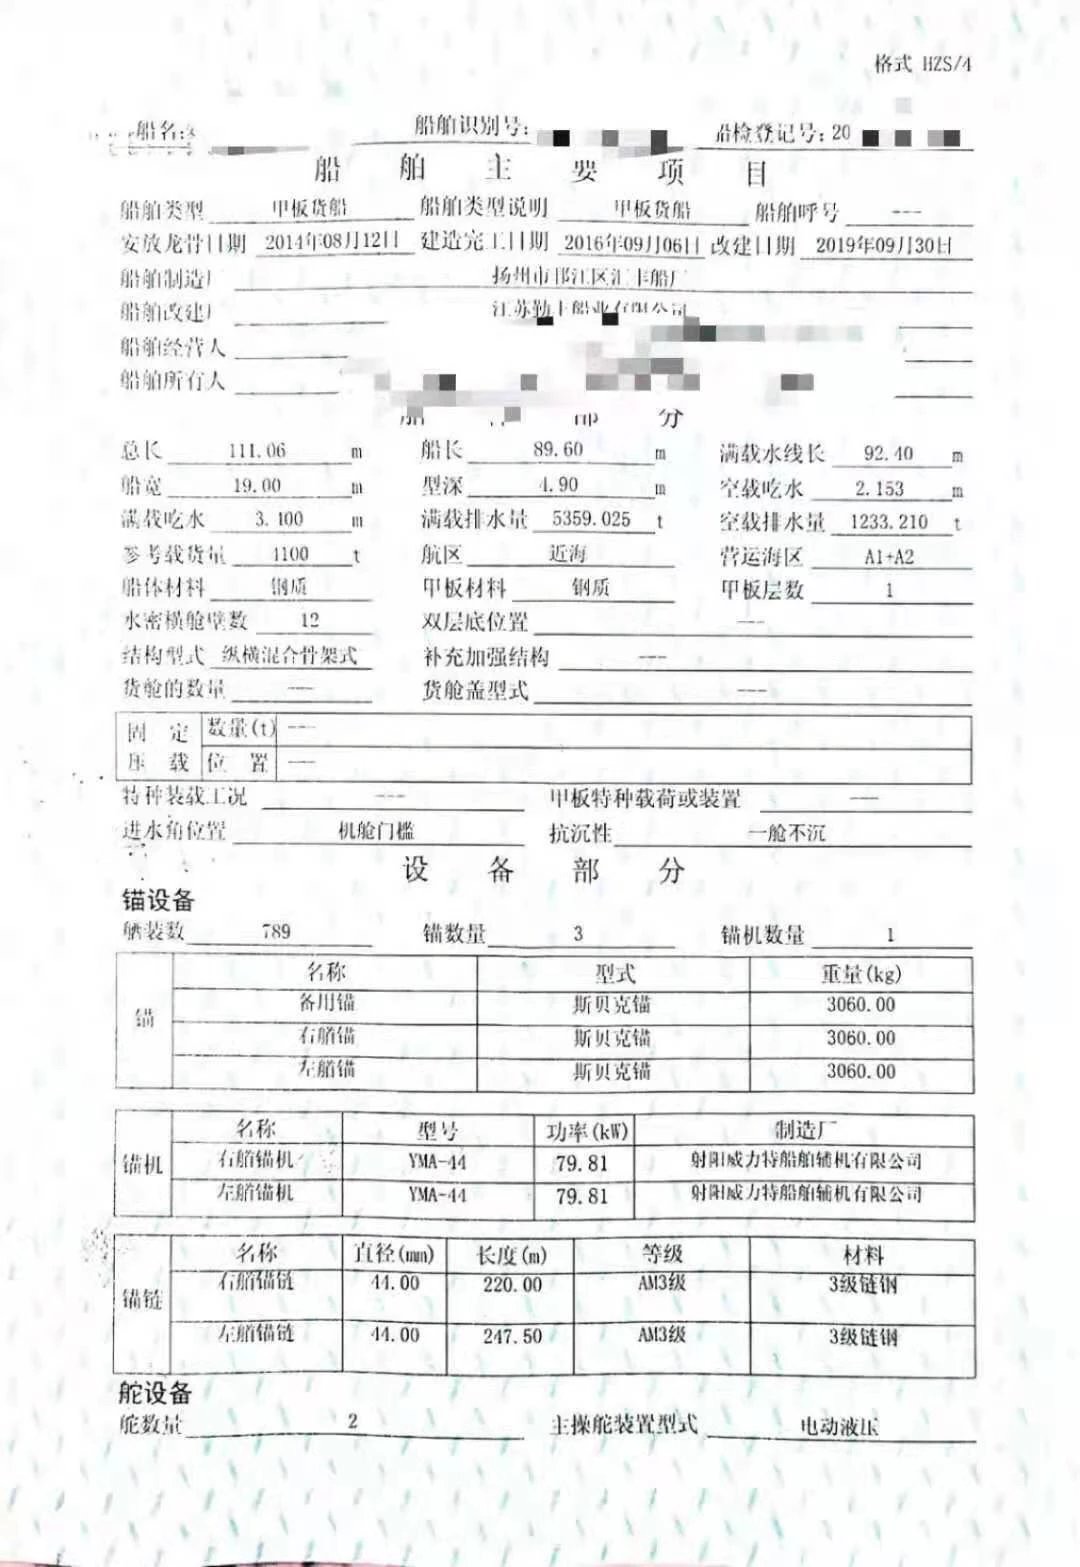 格式 HZS/4
船名: 船舶识别号: 船检登记号: 20
船舶主要项目
船舶类型 甲板货船 船舶类型说明 甲板货船 船舶呼号 ---
安放龙骨日期 2014年08月12日 建造完工日期 2016年09月06日 改建日期 2019年09月30日
船舶制造厂 扬州市邗江区汇丰船厂
船舶改建厂 江苏勤丰船业有限公司
船舶经营人
船舶所有人
部分
总长 111.06 m 船长 89.60 m 满载水线长 92.40 m
船宽 19.00 m 型深 4.90 m 空载吃水 2.153 m
满载吃水 3.400 m 满载排水量 5359.025 t 空载排水量 1233.210 t
参考载货量 4100 t 航区 近海 营运海区 A1+A2
船体材料 钢质 甲板材料 钢质 甲板层数 1
水密横舱壁数 12 双层底位置 ---
结构型式 纵横混合骨架式 补充加强结构 ---
货舱的数量 --- 货舱盖型式 ---
固定压载 数量(t) ---
位置 ---
特种装载工况 --- 甲板特种载荷或装置 ---
进水角位置 机舱门槛 抗沉性 一舱不沉
设备部分
锚设备
舾装数 789 锚数量 3 锚机数量 1
锚 名称 型式 重量(kg)
备用锚 斯贝克锚 3060.00
右艏锚 斯贝克锚 3060.00
左艏锚 斯贝克锚 3060.00
锚机 名称 型号 功率(kW) 制造厂
右艏锚机 YMA-44 79.81 射阳威力特船舶辅机有限公司
左艏锚机 YMA-44 79.81 射阳威力特船舶辅机有限公司
锚链 名称 直径(mm) 长度(m) 等级 材料
右艏锚链 44.00 220.00 AM3级 3级链钢
左艏锚链 44.00 247.50 AM3级 3级链钢
舵设备
舵数量 2 主操舵装置型式 电动液压